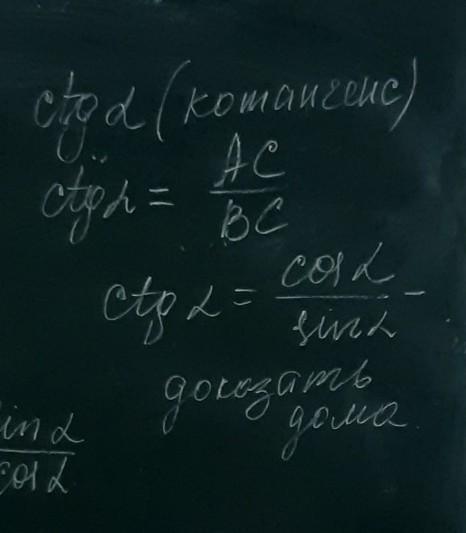 ctg α (котангенс)
ctg α = AC / BC
ctg α = cos α / sin α –
доказать
дома.
sin α / cos α